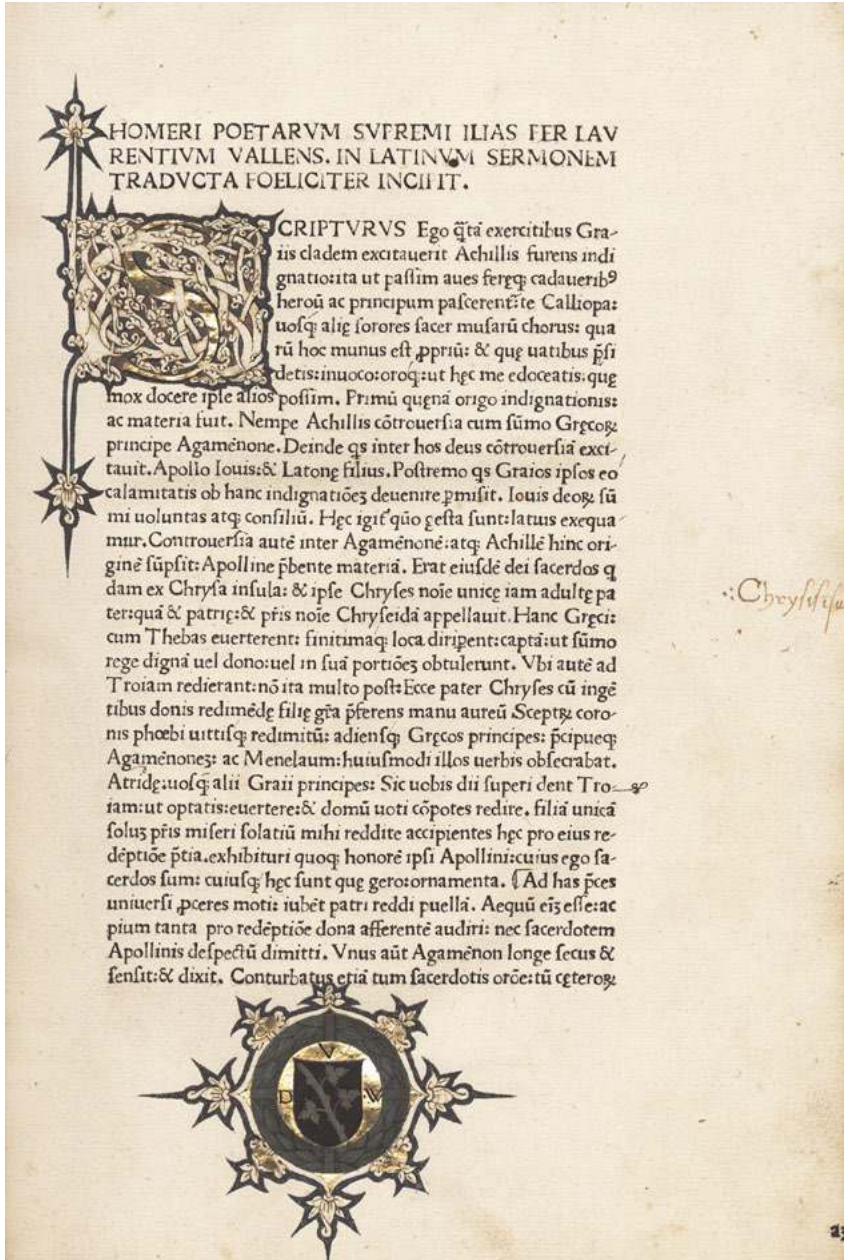 HOMERI POETARVM SVPREMI ILIAS PER LAV
RENTIVM VALLENS. IN LATINVM SERMONEM
TRADVCTA FOELICITER INCIPIT.
SCRIPTVRVS Ego q̃tã exercitibus Gra-
iis cladem excitauerit Achillis furens indi
gnatio: ita ut passim aues feręq; cadauerib⁹
heroũ ac principum pascerent᷑: te Calliopa:
uosq; alię sorores sacer musarũ chorus: qua
rũ hoc munus est ꝓpriũ: & quę uatibus p̃si
detis: inuoco: oroq; ut hęc me edoceatis: quę
mox docere ipse alios possim. Primũ quęnã origo indignationis:
ac materia fuit. Nempe Achillis cõtrouersia cum sũmo Gręcoꝝ
principe Agamẽnone. Deinde qs inter hos deus cõtrouersiã exci-
tauit. Apollo Iouis: & Latonę filius. Postremo qs Graios ipsos eo
calamitatis ob hanc indignatiõeʒ deuenire ꝑmisit. Iouis deoꝝ sũ
mi uoluntas atq; consiliũ. Hęc igit᷑ quõ gesta sunt: latius exequa
mur. Controuersia autẽ inter Agamẽnonẽ: atq; Achillẽ hinc ori-
ginẽ sũpsit: Apolline p̃bente materiã. Erat eiusdẽ dei sacerdos q
dam ex Chrysa insula: & ipse Chryses noĩe unicę iam adultę pa
ter: quã & patrię: & pr̃is noĩe Chryseidã appellauit. Hanc Gręci:
cum Thebas euerterent: finitimaq; loca diriꝑent: captã: ut sũmo
rege dignã uel dono: uel in suã portiõeʒ obtulerunt. Vbi autẽ ad
Troiam redierant: nõ ita multo post: Ecce pater Chryses cũ ingẽ
tibus donis redimẽdę filię gr̃a p̃ferens manu aureũ Sceptꝝ coro-
nis phœbi uittisq; redimitũ: adiensq; Gręcos principes: p̃cipueq;
Agamẽnoneʒ: ac Menelaum: huiusmodi illos uerbis obsecrabat.
Atridę: uosq; alii Graii principes: Sic uobis dii superi dent Tro-
iam: ut optatis: euertere: & domũ uoti cõpotes redire. filiã unicã
soluʒ pr̃is miseri solatiũ mihi reddite accipientes hęc pro eius re-
dẽptiõe p̃tia. exhibituri quoq; honorẽ ipsi Apollini: cuius ego sa-
cerdos sum: cuiusq; hęc sunt quę gero: ornamenta. ¶Ad has p̃ces
uniuersi ꝓceres moti: iubẽt patri reddi puellã. Aequũ eĩʒ esse: ac
pium tanta pro redẽptiõe dona afferentẽ audiri: nec sacerdotem
Apollinis despectũ dimitti. Vnus aũt Agamẽnon longe secus &
sensit: & dixit. Conturbatus etiã tum sacerdotis orõe: tũ cęteroꝝ
V
D W